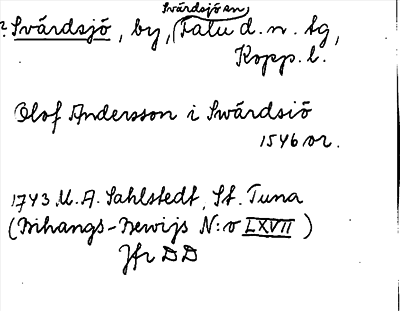 Svärdsjö sn
? Svärdsjö, by, Falu d. n. tg,
Kopp. l.
Olof Andersson i Swärdsiö
1546 or.
1743 M. A. Sahlstedt, St. Tuna
(Bihangs-Bewijs N:o LXVII)
Jfr DD